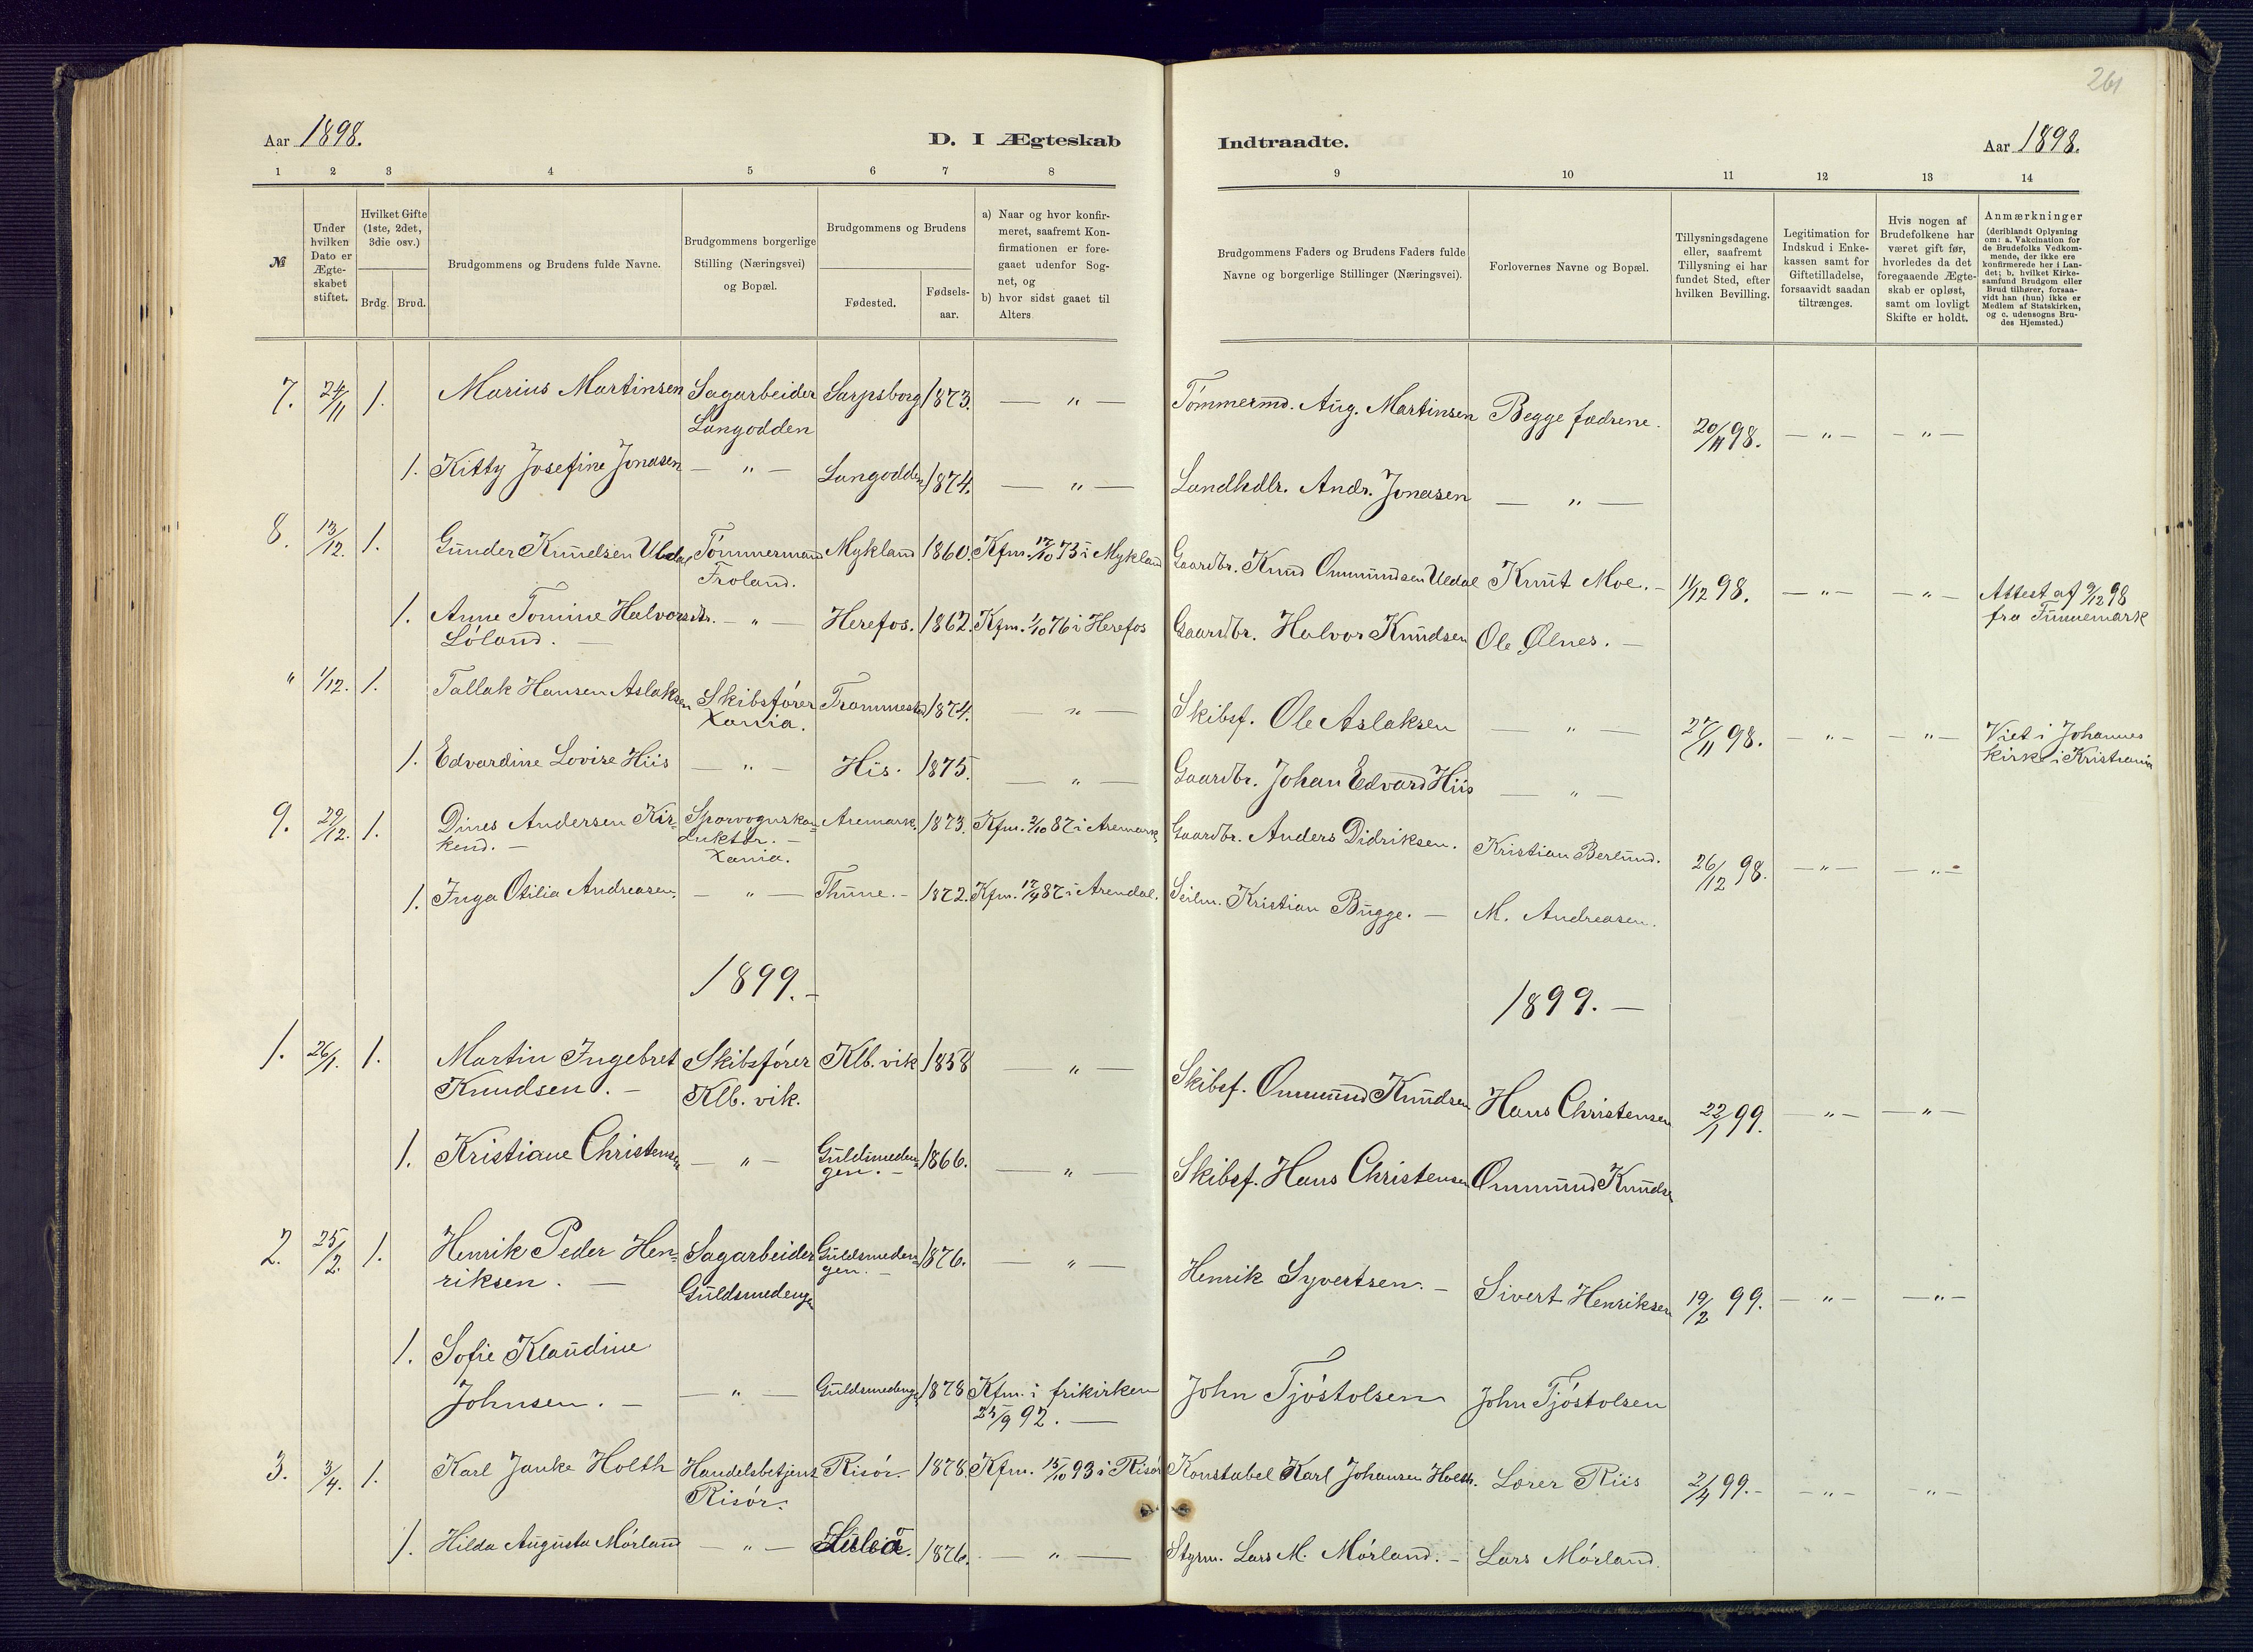 261
Aar 1898.
D. I Ægteskab
Indtraadte.
Aar 1898.
1 2 3 4 5 6 7 8
9 10 11 12 13 14
№
Under
hvilken
Dato er
Ægte-
skabet
stiftet.
Hvilket Gifte
(1ste, 2det,
3die osv.)
Brdg. Brud.
Brudgommens og Brudens fulde Navne.
Brudgommens borgerlige
Stilling (Næringsvei)
og Bopæl.
Brudgommens og Brudens
Fødested.
Fødsels-
aar.
a) Naar og hvor konfir-
meret, saafremt Kon-
firmationen er fore-
gaaet udenfor Sog-
net, og
b) hvor sidst gaaet til
Alters
Brudgommens Faders og Brudens Faders fulde
Navne og borgerlige Stillinger (Næringsvei).
Forlovernes Navne og Bopæl.
Tillysningsdagene
eller, saafremt
Tillysning ei har
fundet Sted, efter
hvilken Bevilling.
Legitimation for
Indskud i Enke-
kassen samt for
Giftetilladelse,
forsaavidt saadan
tiltrænges.
Hvis nogen af
Brudefolkene har
været gift før,
hvorledes da det
foregaaende Ægte-
skab er opløst,
samt om lovligt
Skifte er holdt.
Anmærkninger
(deriblandt Oplysning
om: a. Vakcination for
de Brudefolks Vedkom-
mende, der ikke ere
konfirmerede her i Lan-
det; b. hvilket Kirke-
samfund Brudgom eller
Brud tilhører, forsaa-
vidt han (hun) ikke er
Medlem af Statskirken,
og c. udensogns Bru-
des Hjemsted.)
7. 24/11 1. Marius Martinsen Sagarbeider Sarpsborg 1873. — " — Tømmermd. Aug. Martinsen Begge fædrene.
Langodden
20/11 98. — " — — " —
1. Kitty Josefine Jonasen — " — Langodden 1874. — " — Landhdlr. Andr. Jonasen — " —
8. 13/12. 1. Gunder Knudsen Uldal Tømmermand Mykland 1860. Kfm. 12/10 75 i Mykland Gaardbr. Knud Ommundsen Uldal Knut Moe. —
Froland.
11/12 98. — " — — " — Attest af 9/12 98
fra Tunnemark
1. Anne Tomine Halvorsdtr. — " — Herefos. 1862. Kfm. 1/10 76 i Herefos Gaardbr. Halvor Knudsen Ole Ølnes. —
Løland. —
" 1/12. 1. Tallak Hansen Aslaksen Skibsfører Trommestad 1874. — " — Skibsf. Ole Aslaksen — " —
Xania.
27/11 98. — " — — " — Viet i Johannes
kirke i Kristiania
1. Edvardine Lovise Hiis — " — His. 1875. — " — Gaardbr. Johan Edvard Hiis — " —
9. 29/12. 1. Dines Andersen Kir- Sporvognskon- Aremark. 1873. Kfm. 2/10 87 i Aremark Gaardbr. Anders Didriksen. Kristian Berlund.
kend. — duktør. —
Xania.
26/12 98. — " — — " —
1. Inga Otilia Andreasen. — " — Thune. — 1872. Kfm. 17/4 87 i Arendal. Seilm. Kristian Bugge. — M. Andreasen.
1899. —
1899. —
1. 26/1. 1. Martin Ingebret Skibsfører Klb. vik 1858 — " — Skibsf. Ommund Knudsen Hans Christensen
Knudsen. — Klb. vik.
22/1 99. — " — — " —
1. Kristiane Christensen — " — Guldsmeden- 1866. — " — Skibsf. Hans Christensen Ommund Knudsen
gen. —
2. 25/2. 1. Henrik Peder Hen- Sagarbeider Guldsmeden- 1876. — " — Henrik Syvertsen. — Sivert Henriksen
riksen. — Guldsmedengen gen. —
19/2 99. — " — — " —
1. Sofie Klaudine
Johnsen. — — " — Guldsmedengen 1878 Kfm. i frikirken John Tjøstolsen John Tjøstolsen
25/9 92. —
3. 3/4. 1. Karl Janke Holth Handelsbetjent Risør. 1878. Kfm. 15/10 93 i Risør Konstabel Karl Johansen Holth. Lærer Riis
Risør.
2/4 99. — — " — — " —
1. Hilda Augusta Mørland — " — 1876. — " — Styrm. Lars M. Mørland. — Lars Mørland.